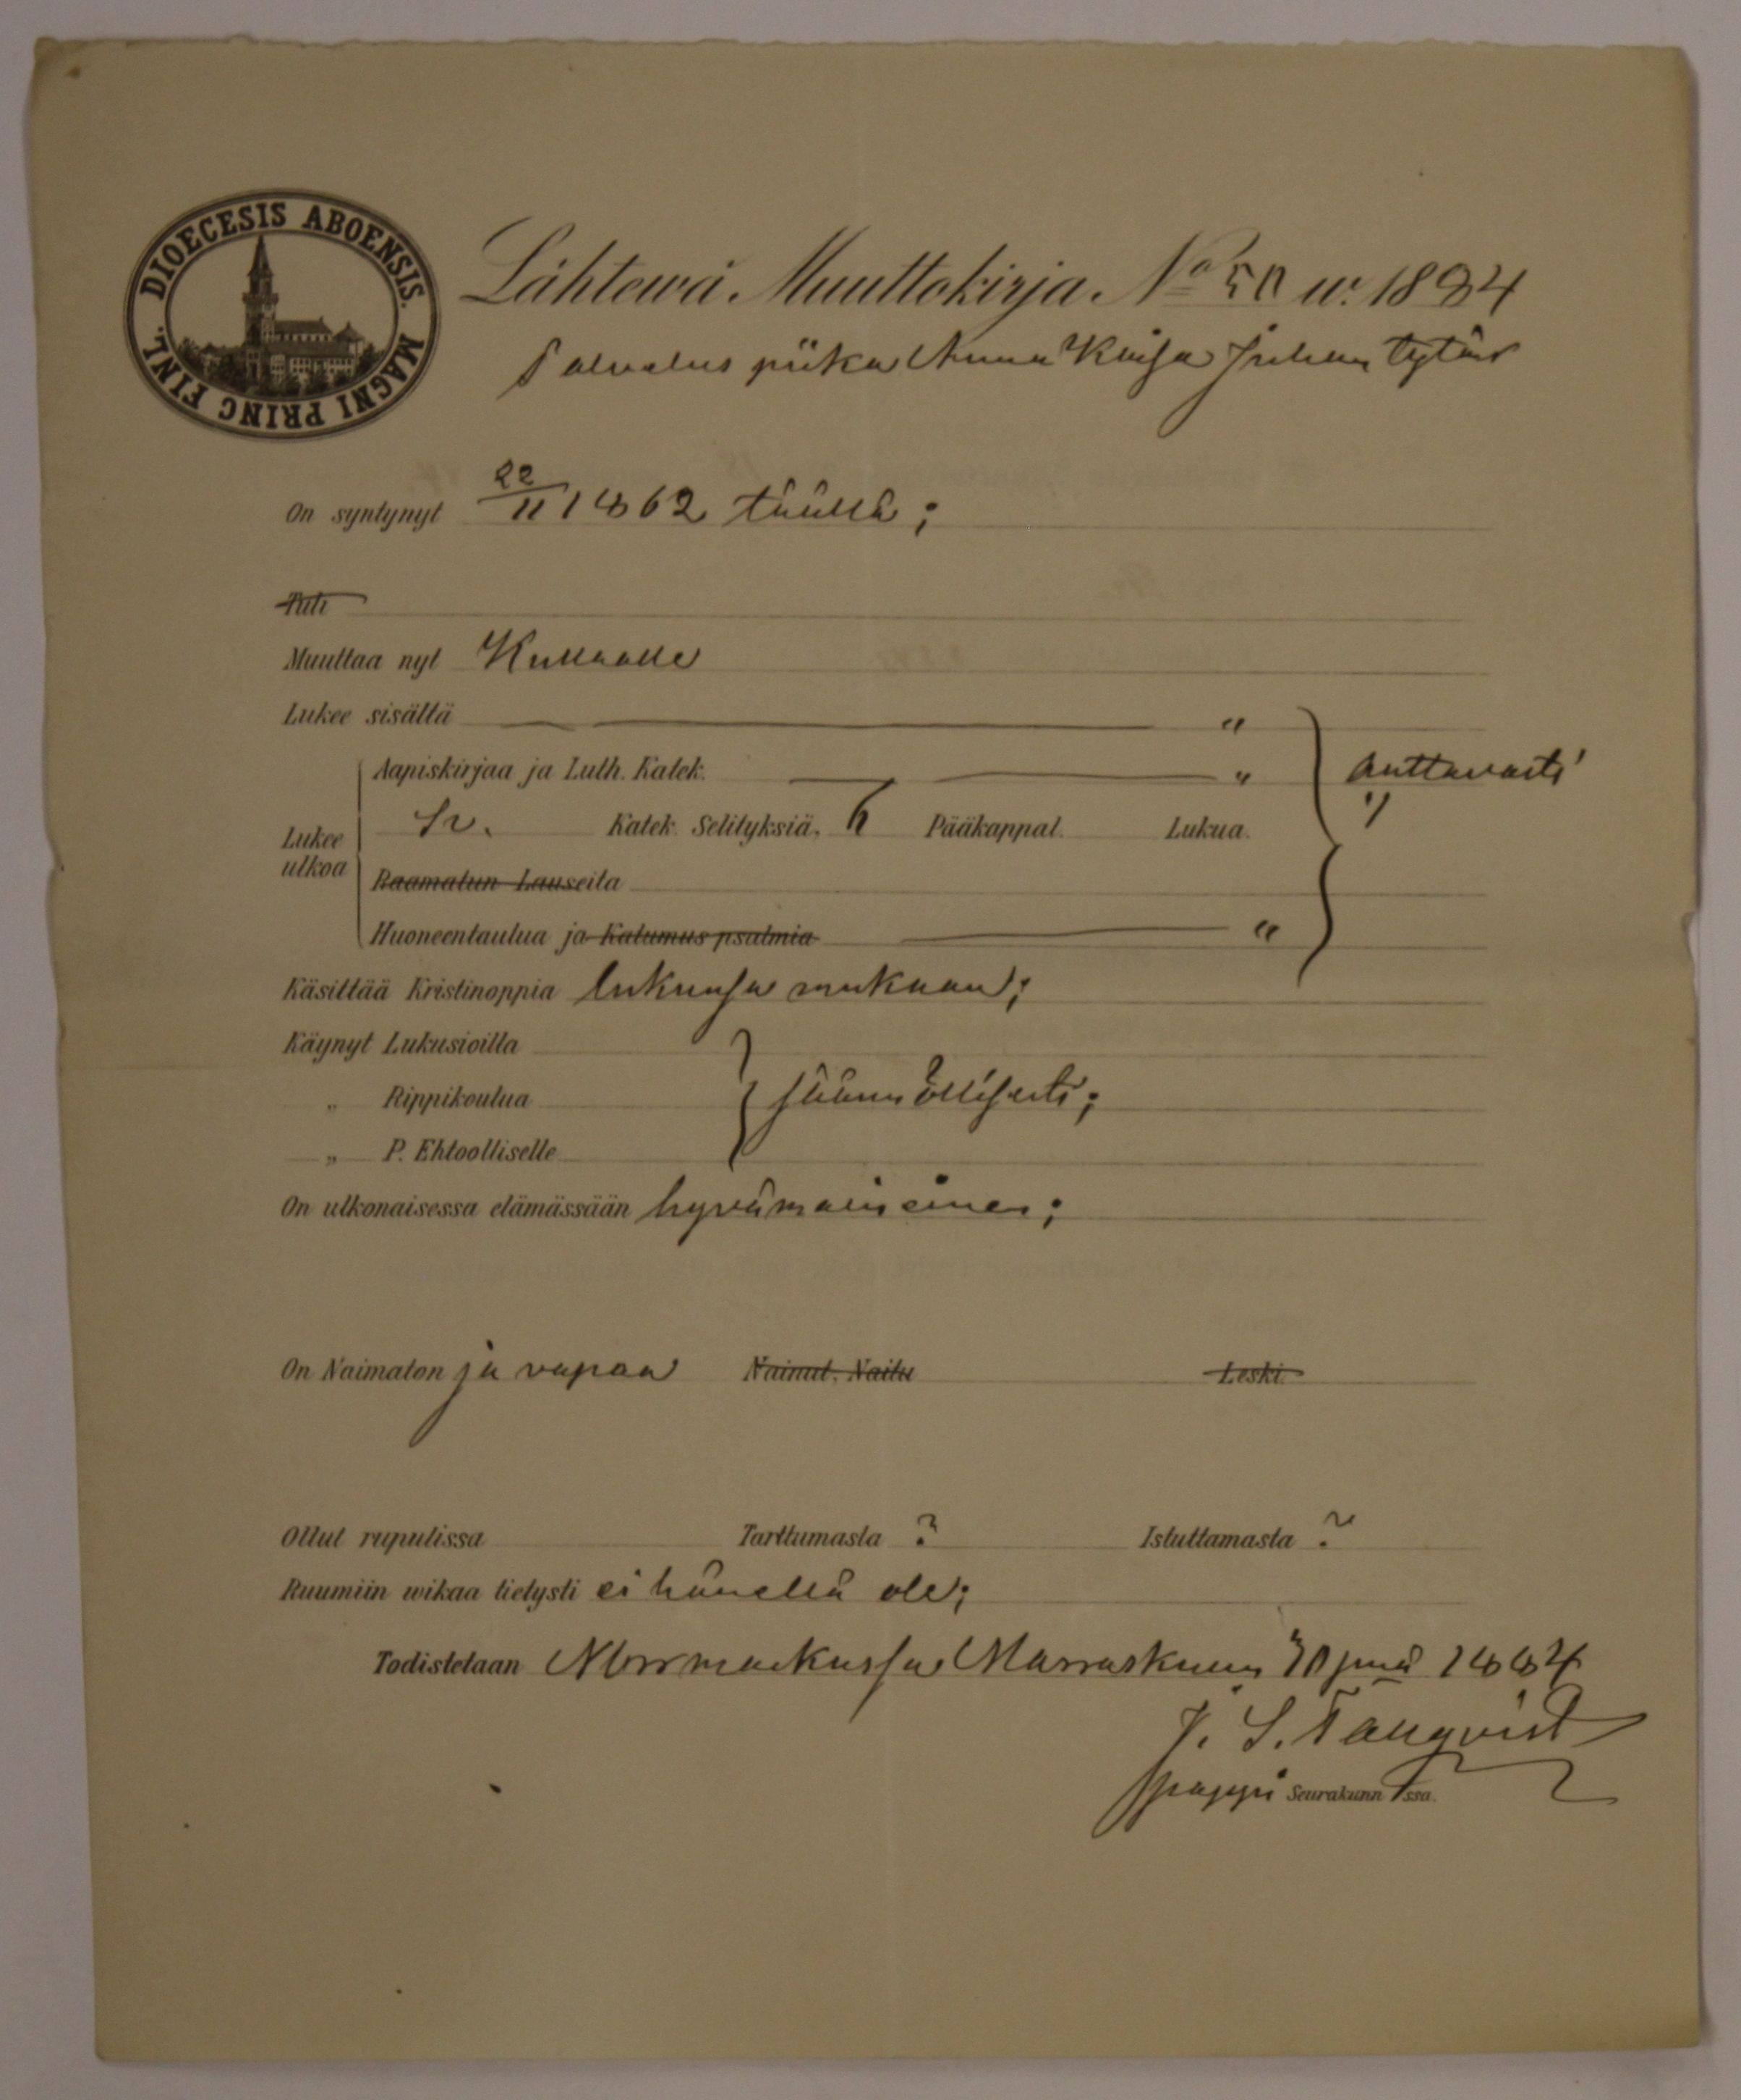 DIOECESIS ABOENSIS. MAGNI PRINC FINL.
Lähtewä Muuttokirja No 50 w. 1884
Palvelus piika Anna Kaisa Juhan tytär
On syntynyt 22/11 1862 täällä;
Tuli
Muuttaa nyt Kullaalle
Lukee sisältä "
Aapiskirjaa ja Luth. Katek. " auttavasti
Lukee ulkoa Sv. Katek. Selityksiä. Pääkappal. Lukua.
Raamatun Lauseita
Huoneentaulua ja Katumus psalmia "
Käsittää Kristinoppia lukunsa mukaan;
Käynyt Lukusioilla
" Rippikoulua säännöllisesti;
" P. Ehtoolliselle
On ulkonaisessa elämässään hyvämaineinen;
On Naimaton ja vapaa Nainut. Naitu Leski.
Ollut rupulissa Tarttumasta ? Istuttamasta ?
Ruumiin wikaa tietysti ei hänellä ole;
Todistetaan Norrmarkussa Marraskuun 30 pnä 1884
J. S. Tallqvist
pappi Seurakunn ssa.